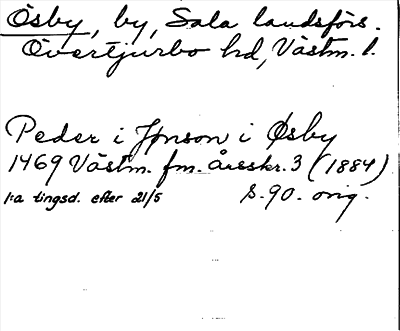 Ösby, by, Sala landsförs.
Övertjurbo hd, Västm. l.
Peder i Jonson i Øsby
1469 Västm. fm. årsskr. 3 (1884)
1:a tingsd. efter 21/5 s. 90. orig.